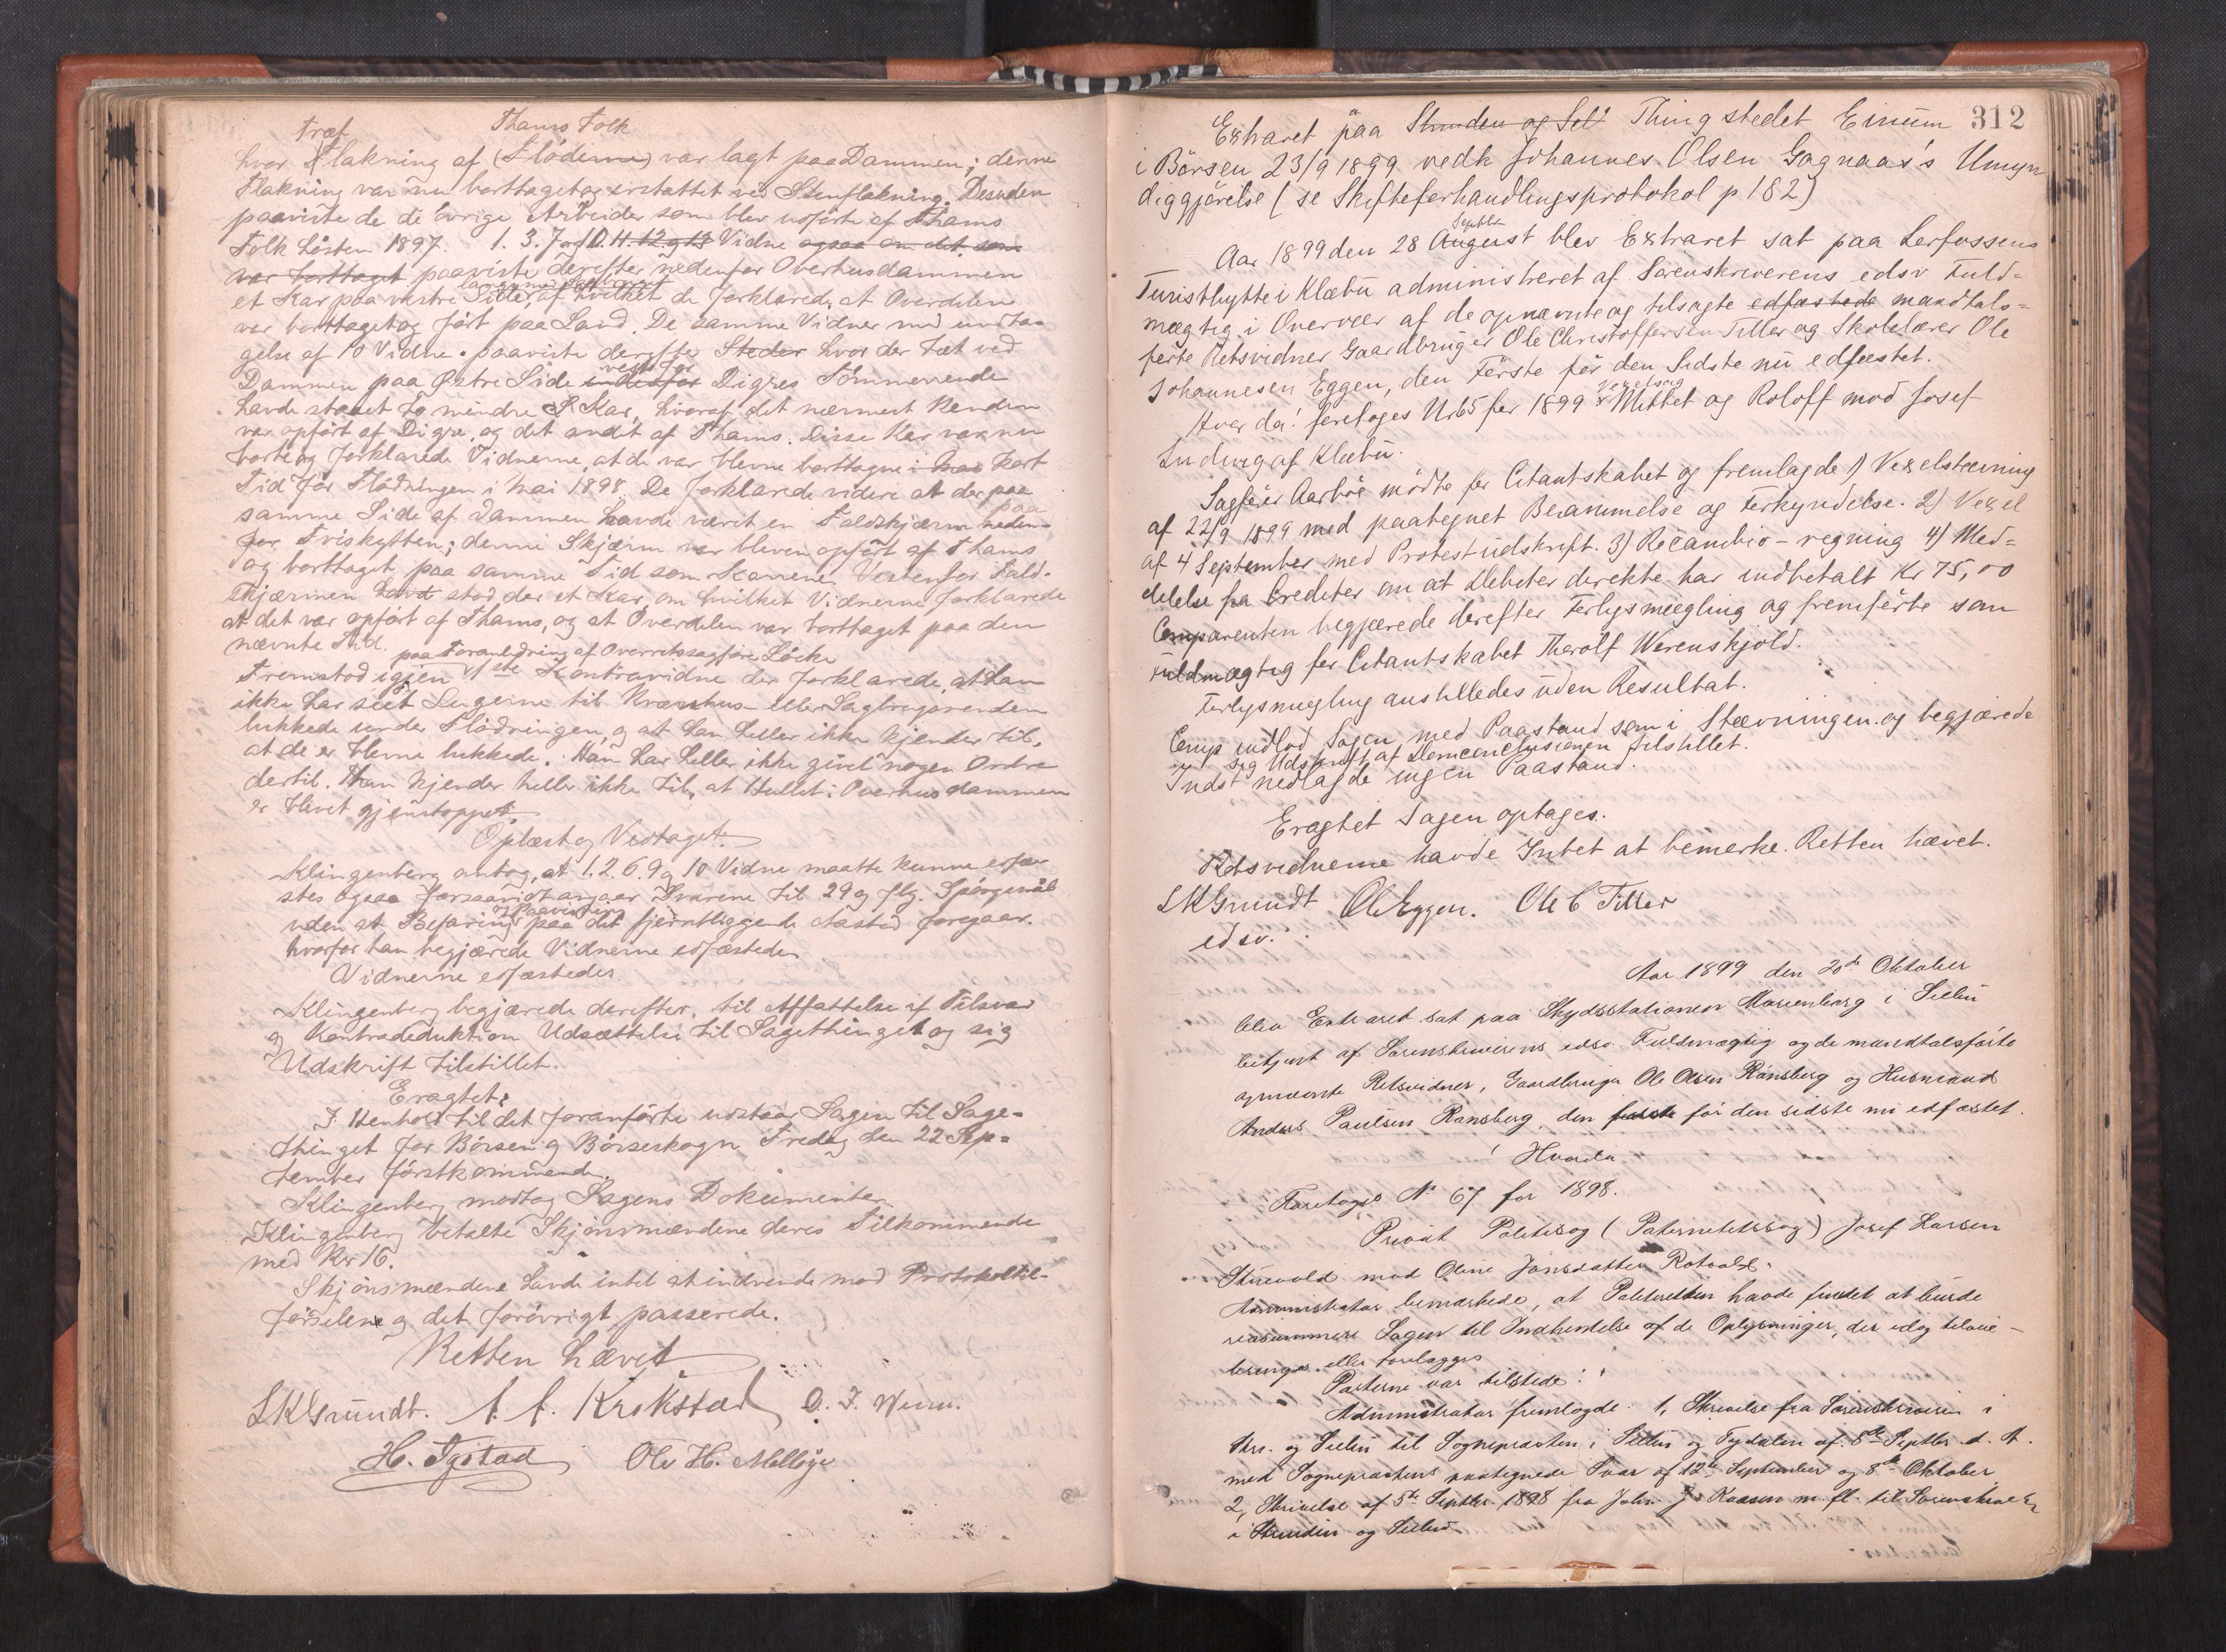 træf Thams Folk
hvor Flakning af (Flöderne) var lagt paa Dammen; denne
Flakning var nu borttaget og erstattet ved Stenflakning. Desuden
paaviste de de övrige Arbeider som blev udförte af Thams
Folk Hösten 1897. 1. 3. 7 og 10. 11. 12 og 13 Vidne ogsaa om det som
var borttaget paaviste derefter nedenfor Overhusdammen
et Kar paa vestre Side, af hvilket de forklarede, at Overdelen
var borttaget og fört paa Land. De samme Vidner med undta-
gelse af 10 Vidne paaviste derefter Steder hvor der tæt ved
vestfor
Dammen paa Östre Side indenfor Digres Tömmerrende
havde staaet to mindre Kar, hvoraf det nærmest Renden
var opfört af Digre, og det andet af Thams. Disse Kar var nu
borte og forklarede Vidnerne, at de var blevne borttagne i Mai kort
Tid för Flödningen i Mai 1898. De forklarede videre at der paa
samme Side af Dammen havde været en Faldskjærm neden-
for Tviskytten; denne Skjærm var bleven opfört af Thams
og borttaget paa samme Tid som Karrene. Vestenfor Fald-
skjærmen havde stod der et Kar, om hvilket Vidnerne forklarede
at det var opfört af Thams, og at Overdelen var borttaget paa den
nævnte Tid.
paa Foranledning af Overretssagförer Löcke
Fremstod igjen 1ste Kontravidne der forklarede, at han
ikke har seet Lugerne til Kværnhus- eller Sagbrugsrenden
lukkede under Flödningen, og at han heller ikke kjender til,
at de er blevne lukkede. Han har heller ikke givet nogen Ordre
dertil. Han kjender heller ikke til, at Hullet i Overhusdammen
er blevet gjenstoppet.
Oplæst og Vedtaget.
Klingenberg antog, at 1. 2. 6. 9 og 10 Vidne maatte kunne edfæ-
stes ogsaa forsaavidt angaar Svarene til 29 og flg. Spörgsmål
og Paavisning
uden at Befaring paa det fjerntliggende Aasted foregaar.
hvorfor han begjærede Vidnerne edfæstede.
Vidnerne edfæstedes.
Klingenberg begjærede derefter, til Affattelse af Tilsvar
og Kontradeduktion Udsættelse til Sagethinget og sig
Udskrift tilstillet.
Eragtet:
I Henhold til det foranförte udstaar Sagen til Sage-
thinget for Börsen og Börseskogn Fredag den 22 Sep-
tember förstkommende.
Klingenberg modtog Sagens Dokumenter
Klingenberg betalte Skjönsmændene deres Tilkommende
med Kr 16.
Skjönsmændene havde intet at indvende mod Protokoltil-
förselen og det forövrigt passerede.
Retten hævet
LKGrundt. A. A. Krokstad O. J. Winn.
H. Tgstad Ole H. Mellöye
312
Extraret paa Strinden og Selb Thingstedet Einum
i Börsen 23/9 1899 vedk Johannes Olsen Gagnaas's Umyn
diggjörelse (se Skifteforhandlingsprotokol p 182)
Septbr
Aar 1899 den 28 August blev Extraret sat paa Lerfossens
Turisthytte i Klæbu administreret af Sorenskriverens edsv Fuld-
mægtig i Overvær af de opnævnte og tilsagte edfæstede mandtals-
förte Retsvidner Gaardbruger Ole Christoffersen Tiller og Skolelærer Ole
Johannesen Eggen, den Förste för den Sidste nu edfæstet.
Vexelsag
Hvor da: foretoges Nr 65 for 1899 Mittet og Roloff mod Josef
Ludvig af Klæbu.
Sagförer Aarhoe mödte for Citantskabet og fremlagde 1) Vexelstævning
af 22/9 1899 med paategnet Berammelse og Forkyndelse. 2) Vexel
af 4 September med Protestudskrift. 3) Recambio-regning 4) Med-
delelse fra Creditor om at Debitor direkte har indbetalt Kr 75,00
Comparenten begjærede derefter Forligsmægling og fremförte som
Fuldmægtig for Citantskabet Thorolf Werenskjold.
Forligsmægling anstilledes uden Resultat.
Comp indlod Sagen med Paastand som i Stævningen og begjærede
sig Udskrift af Domconclusionen tilstillet.
Indst nedlagde ingen Paastand.
Eragtet Sagen optages.
Retsvidnerne havde Intet at bemerke. Retten hævet.
LKGrundt Ole Eggen. Ole C Tiller
edsv.
Aar 1899 den 20de Oktober
blev Extraret sat paa Skydsstationen Marienborg i Selbu
betjent af Sorenskriverens edsv. Fuldmægtig og de mandtalsförte
opnævnte Retsvidner, Gaardbruger Ole Olsen Rönsberg og Husmand
Anders Paulsen Rönsberg, den förste för den sidste nu edfæstet.
Hvorda
Foretoges No 67 for 1898.
Privat Politisag (Paternitetssag) Josef Larsen
Stuevold mod Oline Jonsdatter Rotvold.
Administrator bemærkede, at Politiretten havde fundet at burde
reassummere Sagen til Indhentelse af de Oplysninger, der idag tilveie-
bringes eller forelægges
Parterne var tilstede.
Administrator fremlagde: 1, Skrivelse fra Sorenskriveren i
Str. og Selbu til Sognepræsten i Selbu og Tydalen af 8de Septbr d. A.
med Sognepræstens paategnede Svar af 12te September og 8de Oktober
2, Skrivelse af 5te Septbr 1898 fra John J. Kaasen m. fl. til Sorenskriver
i Strinden og Selbu